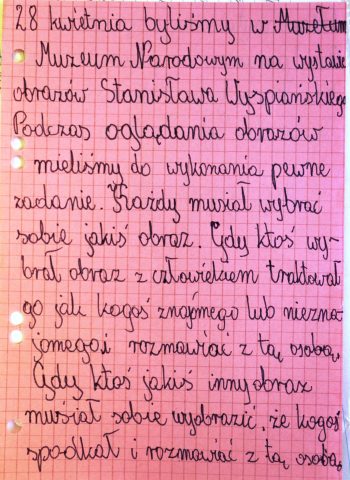 28 kwietnia byliśmy w Muzełum
Muzeum Narodowym na wystawie
obrazów Stanisława Wyspiańskiego
Podczas oglądania obrazów
mieliśmy do wykonania pewne
zadanie. Każdy musiał wybrać
sobie jakiś obraz. Gdy ktoś wy-
brał obraz z człowiedzem traktował
go jak kogoś znajmego lub niezna-
jomego.i rozmawiać z tą osobą.
Gdy ktoś jakiś inny obraz
musiał sobie wyobrazić, że kogoś
spodkał i rozmawiać z tą osobą,